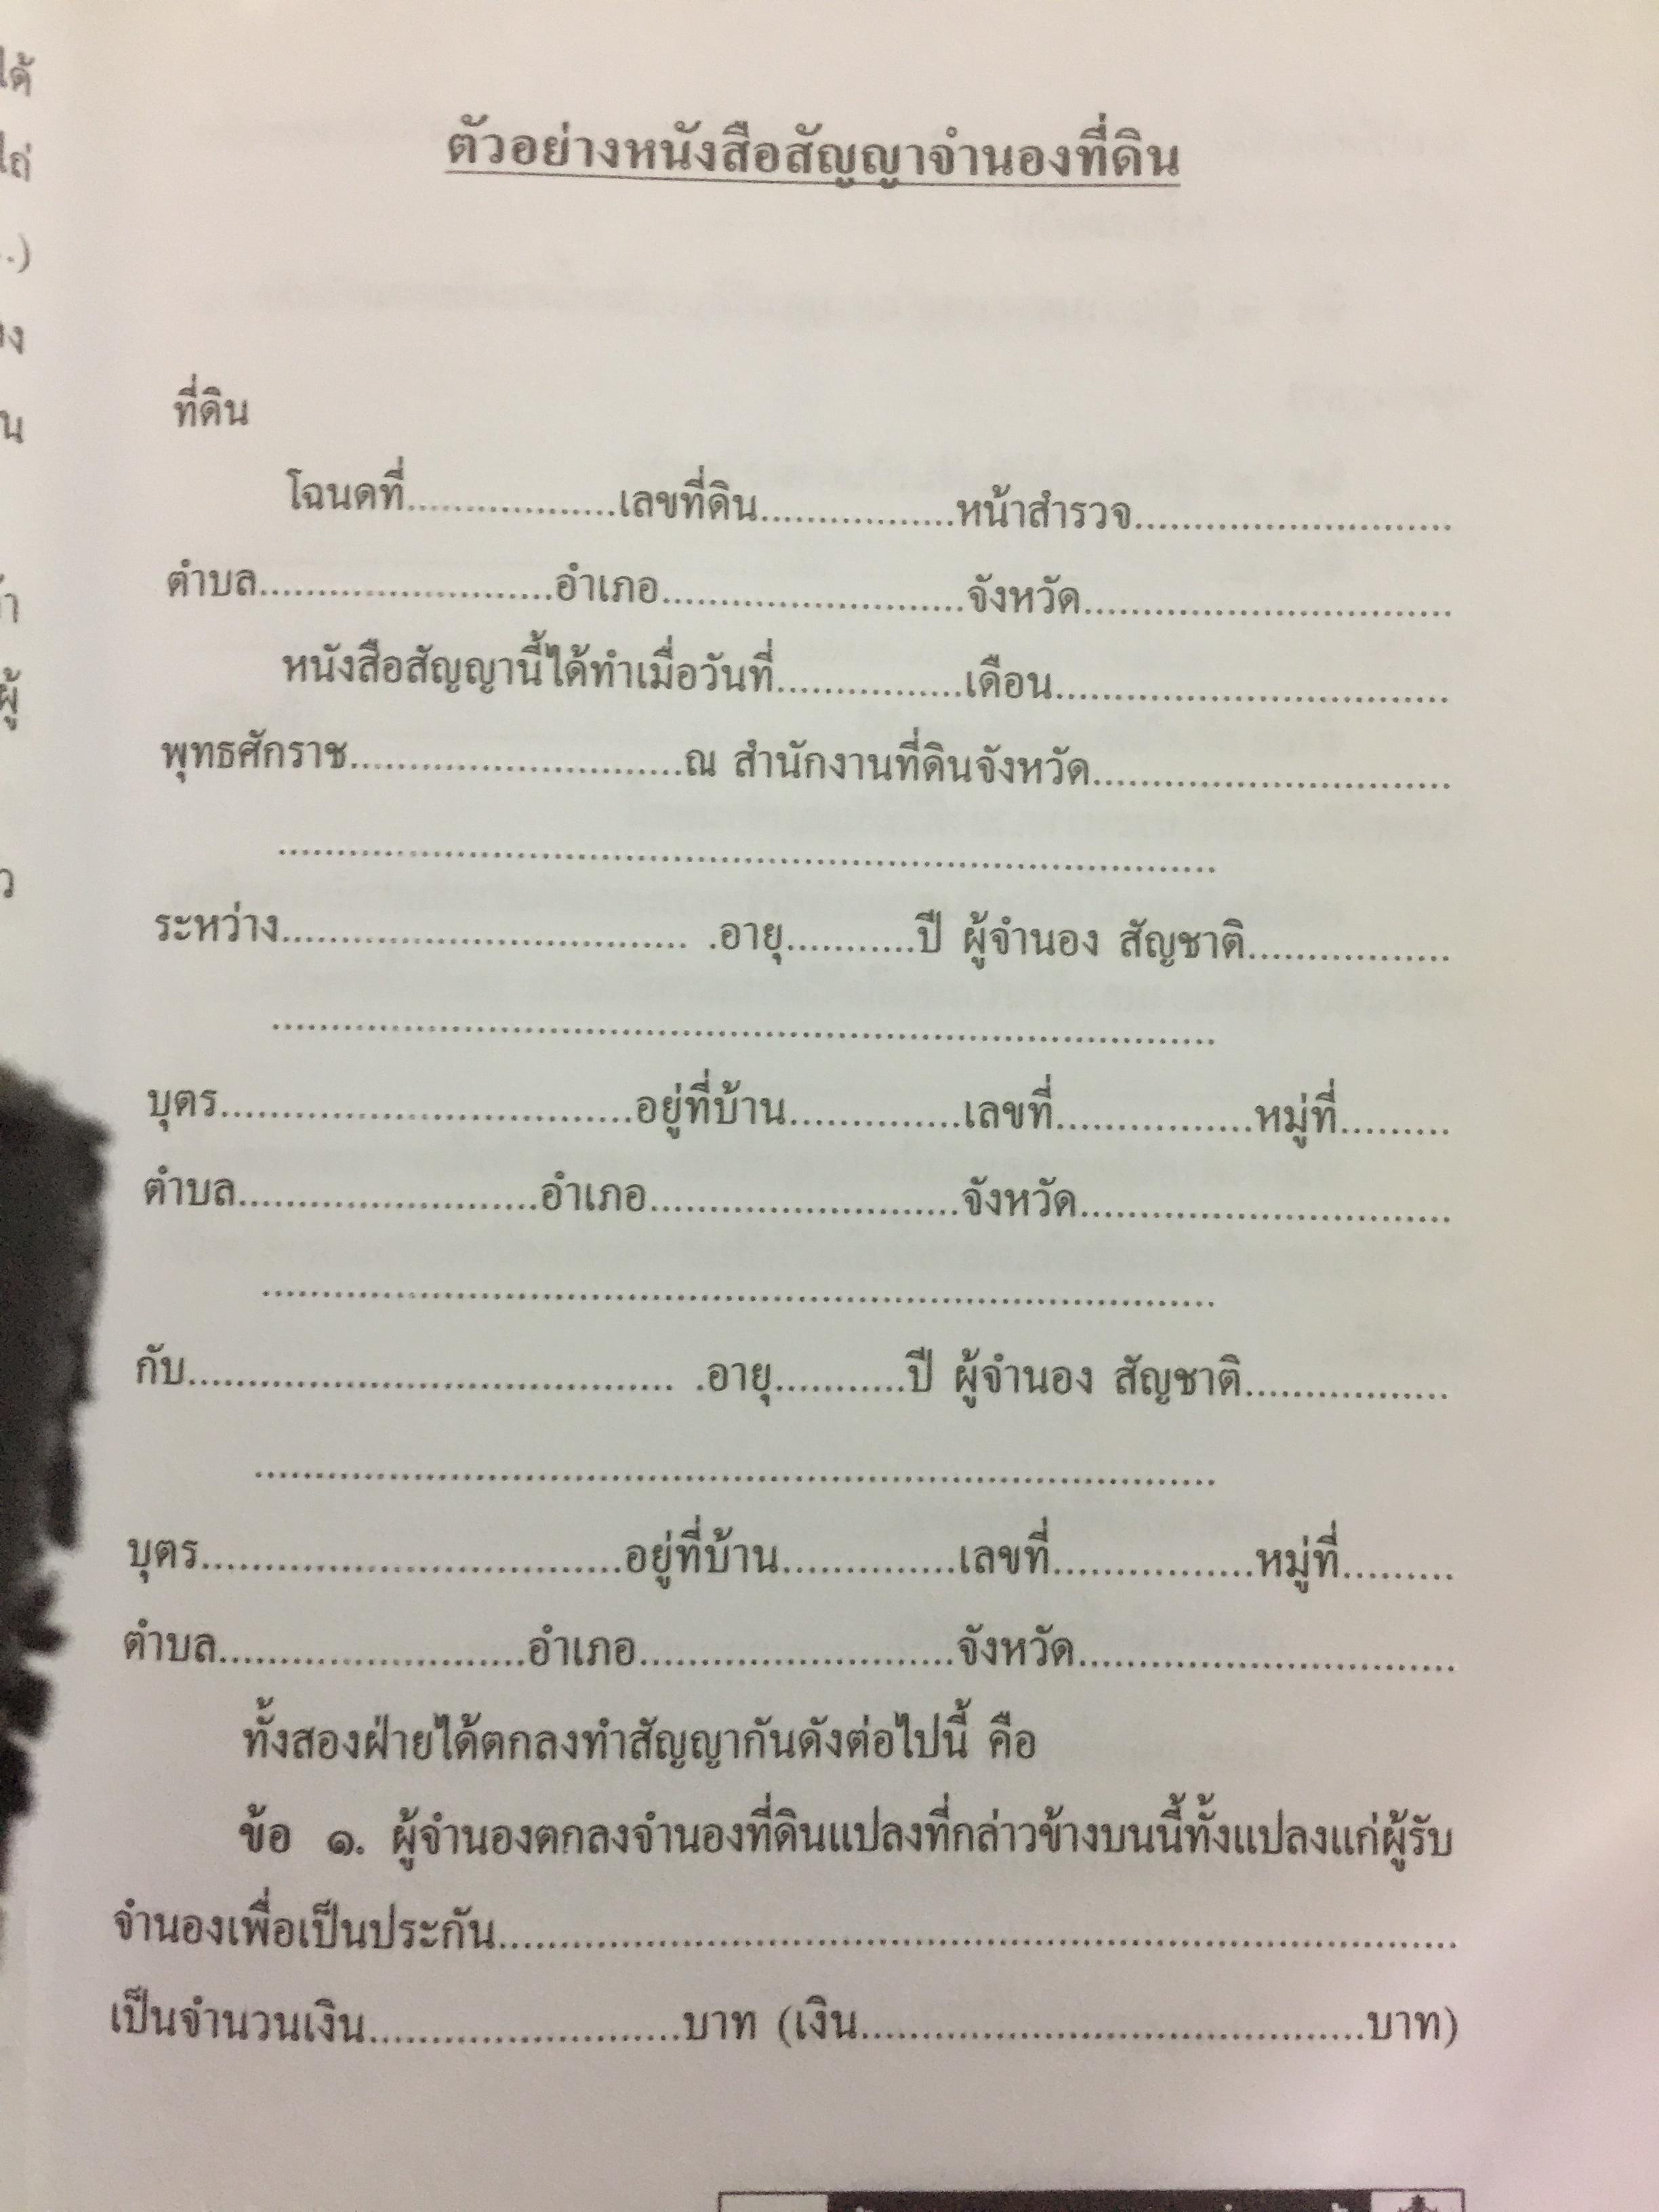 ตัวอย่างหนังสือสัญญาจำนองที่ดิน
ที่ดิน
โฉนดที่..................เลขที่ดิน.................หน้าสำรวจ...........................
ตำบล.........................อำเภอ..........................จังหวัด...............................
หนังสือสัญญานี้ได้ทำเมื่อวันที่................เดือน.................................
พุทธศักราช............................ณ สำนักงานที่ดินจังหวัด..............................
................................................................................
ระหว่าง.................................. .อายุ...........ปี ผู้จำนอง สัญชาติ.................
................................................................................
บุตร....................................อยู่ที่บ้าน..............เลขที่................หมู่ที่.........
ตำบล.........................อำเภอ..........................จังหวัด...............................
................................................................................
กับ......................................... .อายุ...........ปี ผู้จำนอง สัญชาติ.................
................................................................................
บุตร...................................อยู่ที่บ้าน..............เลขที่................หมู่ที่.........
ตำบล..........................อำเภอ..........................จังหวัด................................
ทั้งสองฝ่ายได้ตกลงทำสัญญากันดังต่อไปนี้ คือ
ข้อ ๑. ผู้จำนองตกลงจำนองที่ดินแปลงที่กล่าวข้างบนนี้ทั้งแปลงแก่ผู้รับ
จำนองเพื่อเป็นประกัน................................................................................
เป็นจำนวนเงิน..........................บาท (เงิน..........................................บาท)